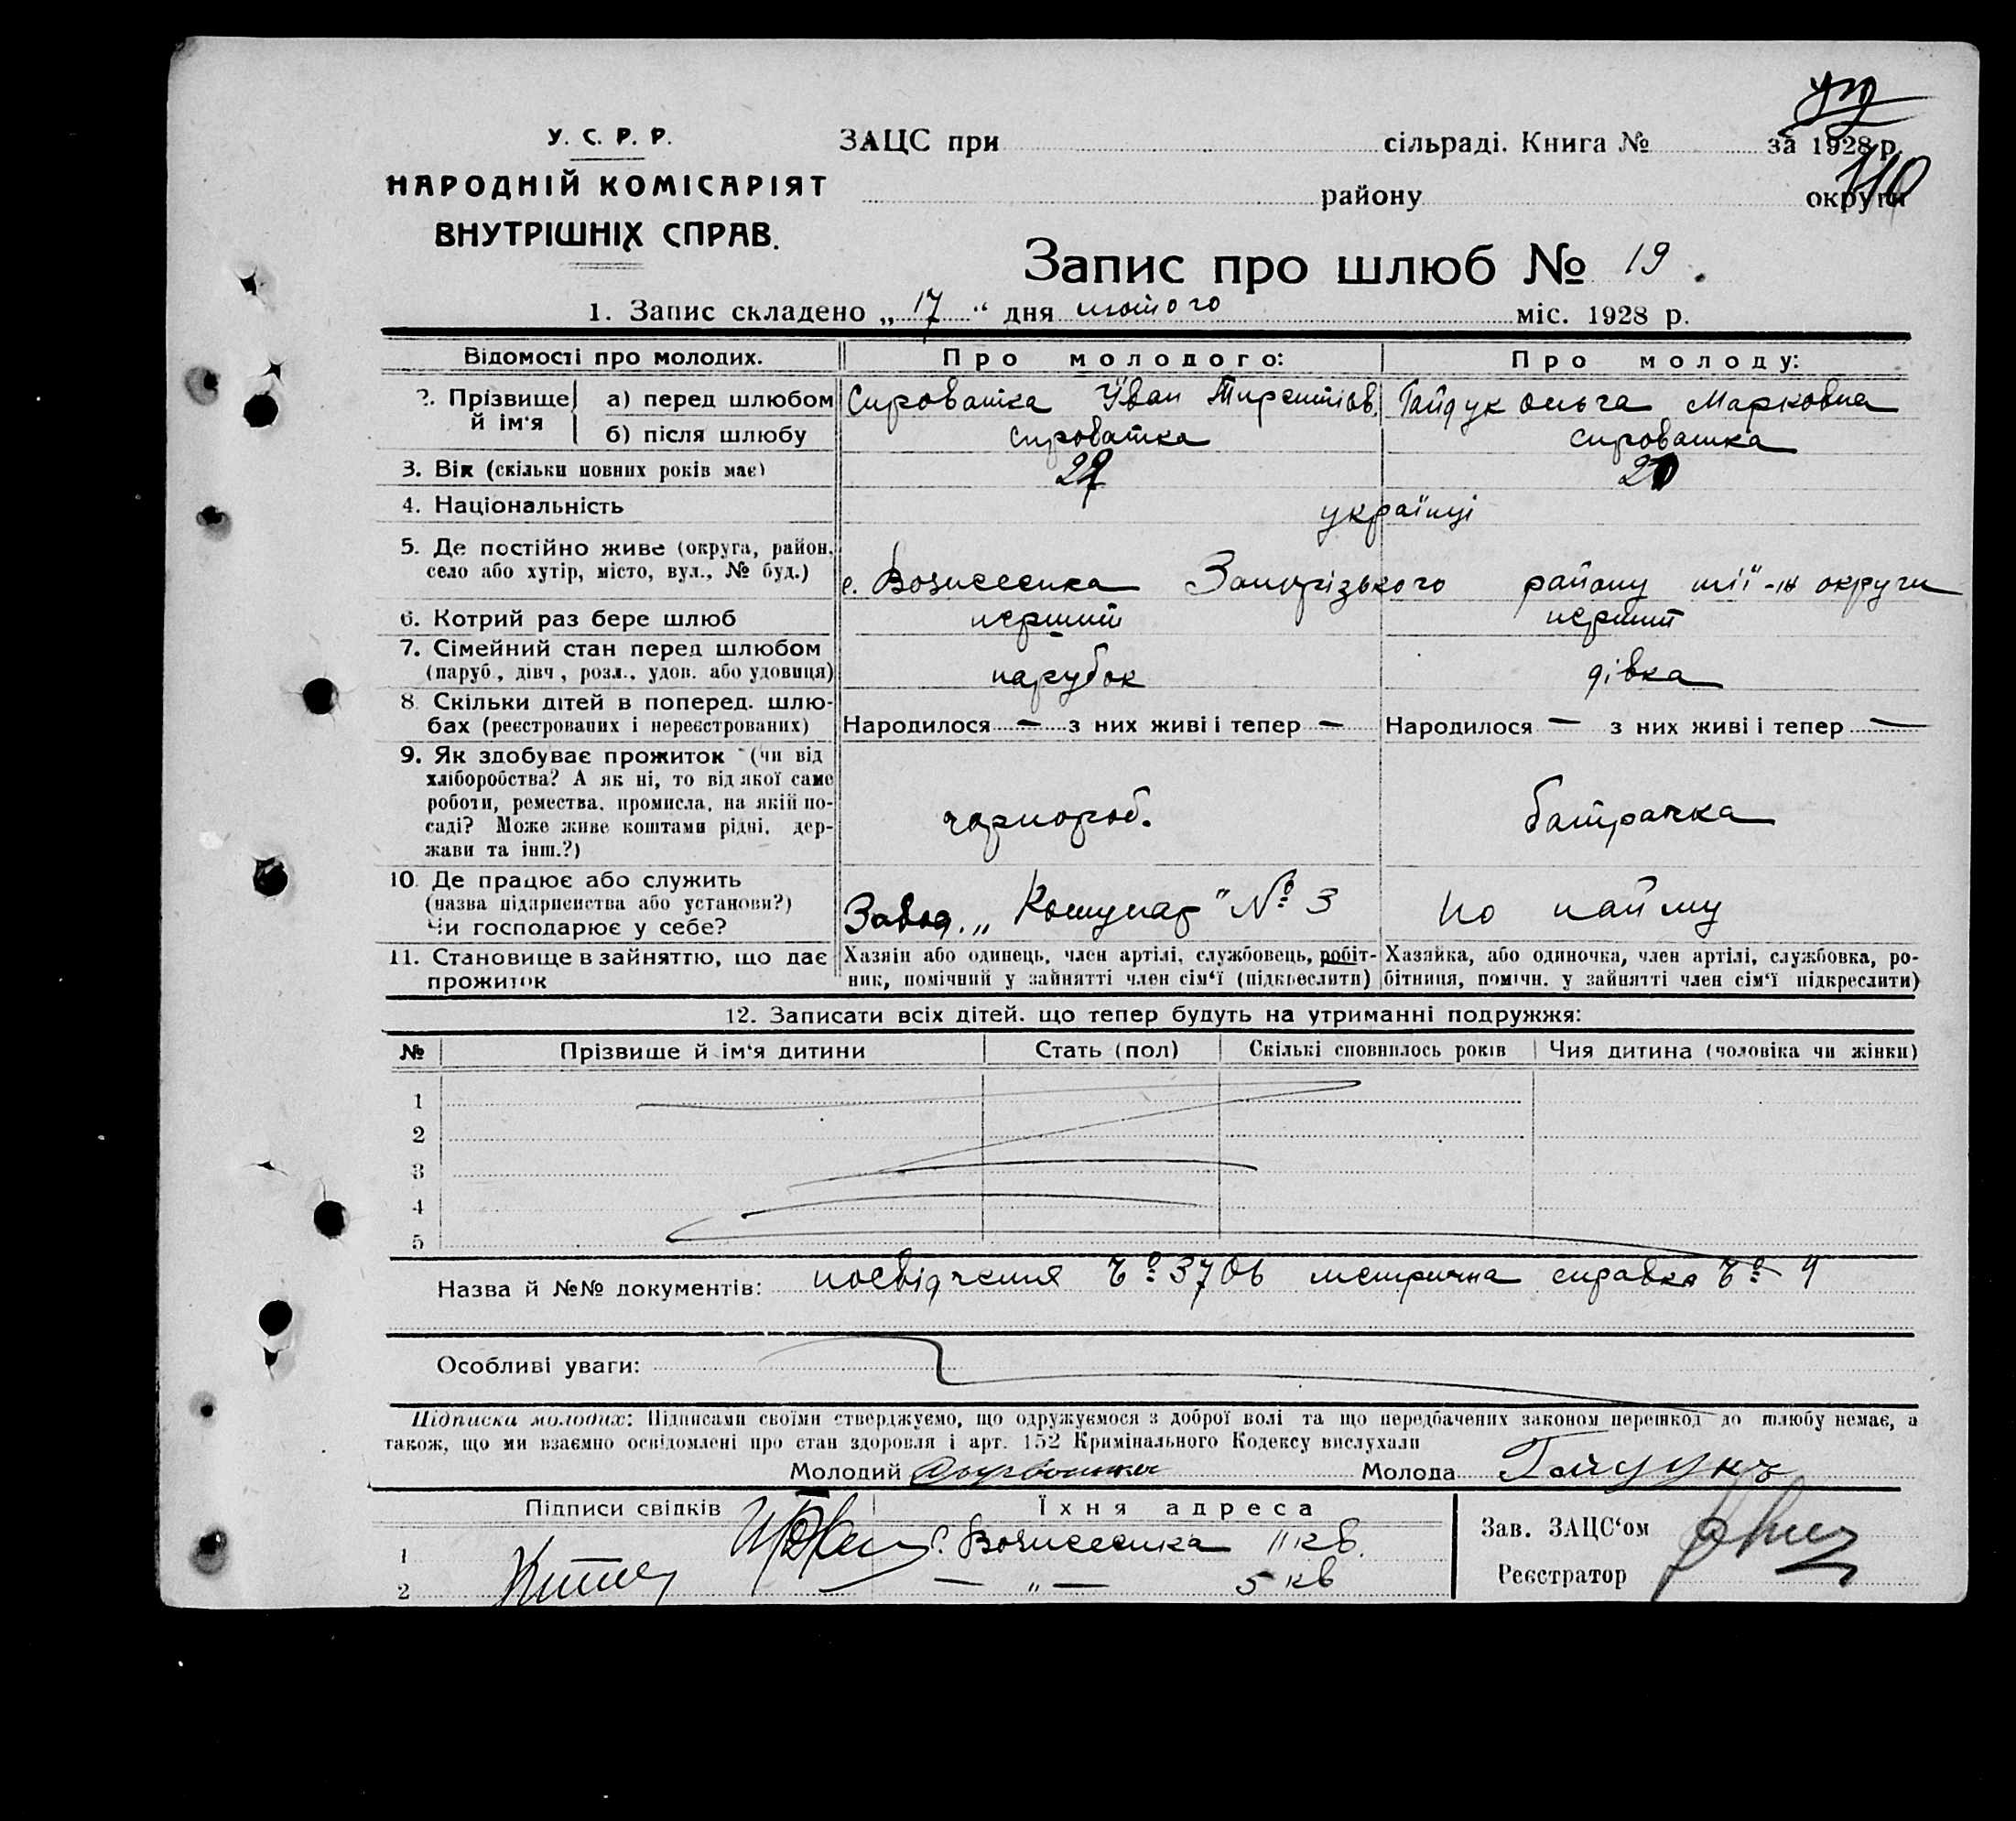 У. С. Р. Р.
НАРОДНІЙ КОМІСАРІЯТ
ВНУТРІШНІХ СПРАВ.
ЗАЦС при сільраді. Книга № за 1928 р.
району округи
110
Запис про шлюб № 19.
1. Запис складено „17“ дня лютого міс. 1928 р.
Відомості про молодих. Про молодого: Про молоду:
2. Прізвище й ім‘я а) перед шлюбом Сироватка Іван Гайдук Ольга Марковна
б) після шлюбу Сироватка Сироватка
3. Вік (скільки повних років має)
4. Національність українці
5. Де постійно живе (округа, район, село або хутір, місто, вул., № буд.) с. Вознесенка Запорізького району округи
6. Котрий раз бере шлюб перший перший
7. Сімейний стан перед шлюбом (паруб., дівч., розл., удов. або удовиця) парубок дівка
8. Скільки дітей в поперед. шлюбах (реєстрованих і нереєстрованих) Народилося — з них живі і тепер — Народилося — з них живі і тепер —
9. Як здобуває прожиток (чи від
хліборобства? А як ні, то від якої саме
роботи, ремества, промисла, на якій по-
саді? Може живе коштами рідні, дер-
жави та інш.?)
чорнороб. батрачка
10. Де працює або служить
(назва підприємства або установи?)
Чи господарює у себе?
Завод. „Комунар“ № 3 по найму
11. Становище в зайняттю, що дає
прожиток
Хазяін або одинець, член артілі, службовець, робіт-
ник, помічний у зайнятті член сім‘ї (підкреслити)
Хазяйка, або одиночка, член артілі, службовка, ро-
бітниця, помічн. у зайнятті член сім‘ї підкреслити)
12. Записати всіх дітей. що тепер будуть на утриманні подружжя:
№ Прізвише й ім‘я дитини Стать (пол) Скількі сповнилось років Чия дитина (чоловіка чи жінки)
1
2
3
4
5
Назва й №№ документів: посвідчення 3706 метрична справка 4
Особливі уваги:
Підписки молодих: Підписами своїми стверджуємо, що одружуємося з доброї волі та що передбачених законом перешкод до шлюбу немає, а
також, що ми взаємно освідомлені про стан здоровля і арт. 152 Кримінального Кодексу вислухали
Молодий Молода Гайдукъ
Підписи свідків Їхня адреса
1 с. Вознесенка 11 кв.
2 — „ — 5 кв
Зав. ЗАЦС‘ом
Реєстратор